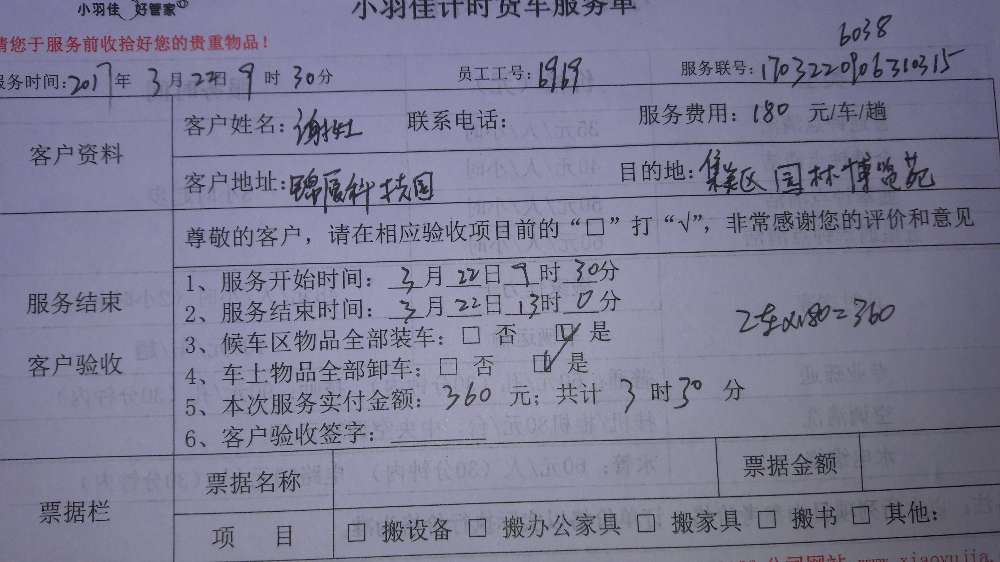 小羽佳 好管家
小羽佳计时货车服务单
请您于服务前收拾好您的贵重物品！
6038
服务时间:2017年 3月22日9时30分 员工工号:6969 服务联号:1703220906310315
客户资料
客户姓名: 谢 联系电话: 服务费用: 180 元/车/趟
客户地址: 锦厦科技园 目的地: 集美区园林博览苑
服务结束
客户验收
尊敬的客户，请在相应验收项目前的“□”打“√”，非常感谢您的评价和意见
1、服务开始时间: 3月22日9时30分
2、服务结束时间: 3月22日13时0分
3、候车区物品全部装车: □ 否 ☑ 是
4、车上物品全部卸车: □ 否 ☑ 是
2车x180=360
5、本次服务实付金额: 360 元; 共计 3 时30 分
6、客户验收签字:
票据栏
票据名称 票据金额
项 目 □ 搬设备 □ 搬办公家具 □ 搬家具 □ 搬书 □ 其他:
公司网站 www.xiaoyujia.